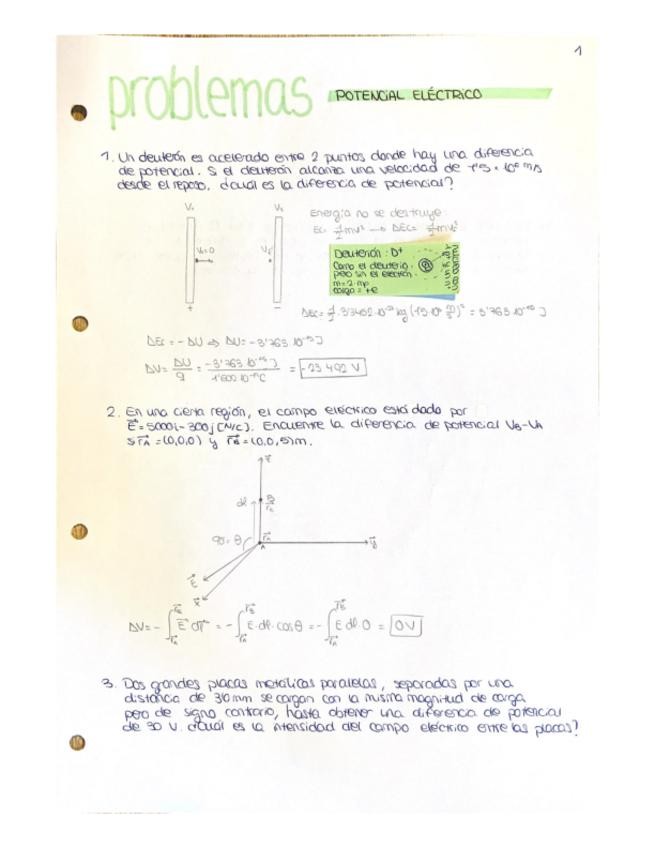 1
problemas
POTENCIAL ELÉCTRICO
1. Un deuterón es acelerado entre 2 puntos donde hay una diferencia
de potencial. Si el deuterón alcanza una velocidad de 1'5 · 10⁶ m/s
desde el reposo, ¿cuál es la diferencia de potencial?
Energía no se destruye:
V₀=0
+ −
Deuterión: D⁺
Como el deuterio,
pero sin el electrón.
m=2·mp
carga = +e
ΔEc = −ΔU ⇒ ΔU = −3'763·10⁻¹⁵ J
ΔV = ΔU/q = −3'763·10⁻¹⁵ J / 1'602·10⁻¹⁹ C = −23 492 V
2. En una cierta región, el campo eléctrico está dado por
E⃗ = 5000i − 300j [N/C]. Encuentre la diferencia de potencial VB−VA
si r⃗A = (0,0,0) y r⃗B = (0,0,5)m.
dl
90º = θ
A
ΔV = −∫ E⃗ dr⃗ = −∫ E·dl·cosθ = −∫ E dl·0 = 0V
3. Dos grandes placas metálicas paralelas, separadas por una
distancia de mm se cargan con la misma magnitud de carga
pero de signo contrario, hasta obtener una diferencia de potencial
de 90 V. ¿cuál es la intensidad del campo eléctrico entre las placas?